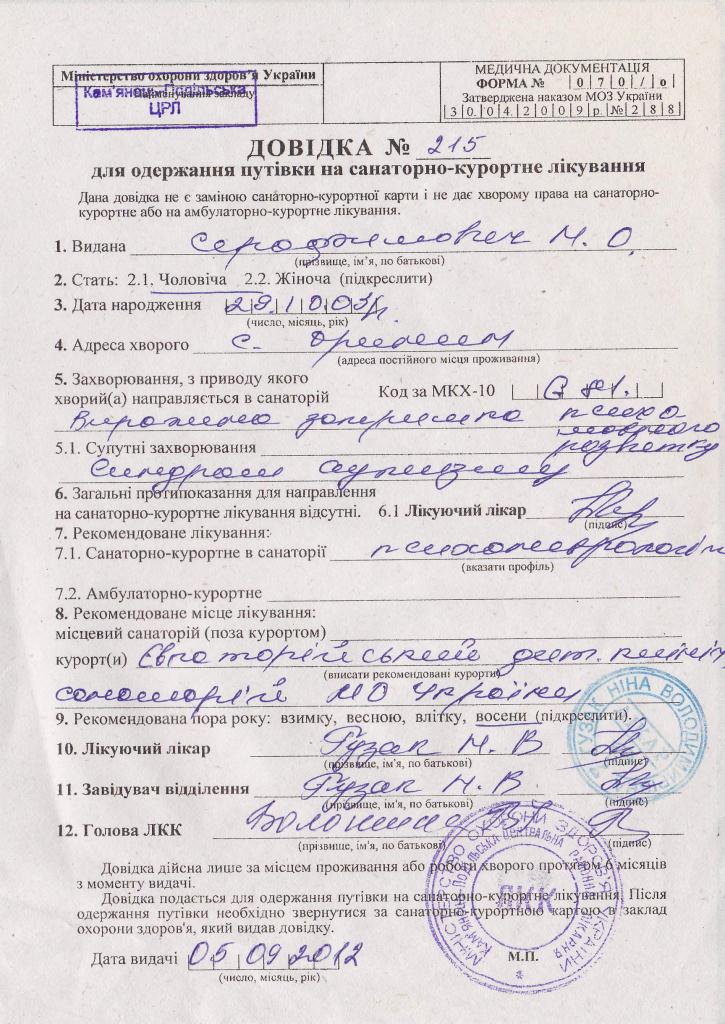 Міністерство охорони здоров'я України
Найменування закладу
Кам'янець-Подільська
ЦРЛ
МЕДИЧНА ДОКУМЕНТАЦІЯ
ФОРМА № 0 7 0 / о
Затверджена наказом МОЗ України
3 0. 0 4. 2 0 0 9 р. № 2 8 8
ДОВІДКА № 215
для одержання путівки на санаторно-курортне лікування
Дана довідка не є заміною санаторно-курортної карти і не дає хворому права на санаторно-
курортне або на амбулаторно-курортне лікування.
1. Видана М. О.
(прізвище, ім'я, по батькові)
2. Стать: 2.1. Чоловіча 2.2. Жіноча (підкреслити)
3. Дата народження 29.10.03р.
(число, місяць, рік)
4. Адреса хворого с.
(адреса постійного місця проживання)
5. Захворювання, з приводу якого
хворий(а) направляється в санаторій Код за МКХ-10
Виражена затримка психо
мовного
5.1. Супутні захворювання розвитку
Синдром аутизму
6. Загальні протипоказання для направлення
на санаторно-курортне лікування відсутні. 6.1 Лікуючий лікар
(підпис)
7. Рекомендоване лікування:
7.1. Санаторно-курортне в санаторії
(вказати профіль)
7.2. Амбулаторно-курортне
8. Рекомендоване місце лікування:
місцевий санаторій (поза курортом)
курорт(и) Євпаторійський дит. клініч
(вписати рекомендовані курорти)
санаторій МО України
9. Рекомендована пора року: взимку, весною, влітку, восени (підкреслити).
10. Лікуючий лікар Гузак Н. В
(прізвище, ім'я, по батькові) (підпис)
11. Завідувач відділення Гузак Н. В.
(прізвище, ім'я, по батькові) (підпис)
12. Голова ЛКК
(прізвище, ім'я, по батькові) (підпис)
Довідка дійсна лише за місцем проживання або роботи хворого протягом 6 місяців
з моменту видачі.
Довідка подається для одержання путівки на санаторно-курортне лікування. Після
одержання путівки необхідно звернутися за санаторно-курортною картою в заклад
охорони здоров'я, який видав довідку.
Дата видачі 05 09 2012
(число, місяць, рік)
М.П.
ГУЗАК НІНА ВОЛОДИМИРІВНА
ЛІКАР
МІНІСТЕРСТВО ОХОРОНИ ЗДОРОВ'Я УКРАЇНИ
КАМ'ЯНЕЦЬ-ПОДІЛЬСЬКА ЦЕНТРАЛЬНА РАЙОННА ЛІКАРНЯ
ЛКК